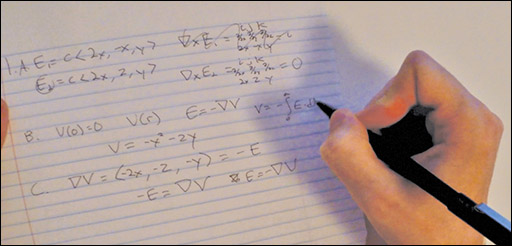 1. A. E₁ = c<2x, -x, y> ∇x E₁ = i j K
E₂ = c<2x, 2, y> ∇x E₂ = i j K 2x 2 y = 0
B. V(0)=0 V(r) E=-∇V V = -∫E·dl
V = -x²-2y
C. ∇V = (-2x, -2, -y) = -E
-E = ∇V E=-∇V